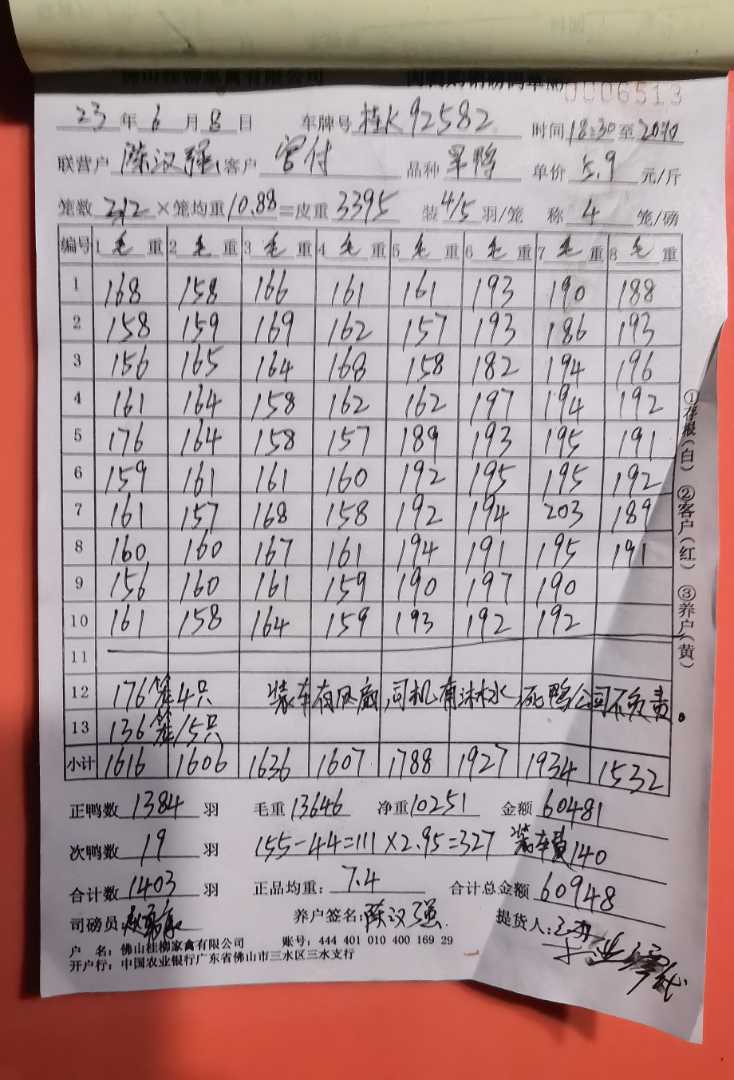 佛山桂柳家禽有限公司
0006513
23年6月8日 车牌号 桂K92582 时间18:30至2040
联营户 陈汉强 客户 官付 品种 旱鸭 单价 5.9 元/斤
笼数 312 ×笼均重 10.88 =皮重 3395 装 4/5 羽/笼 称 4 笼/磅
编号 1 毛 重 2 毛 重 3 毛 重 4 毛 重 5 毛 重 6 毛 重 7 毛 重 8 毛 重
1 168 158 166 161 161 193 190 188
2 158 159 169 162 157 193 186 193
3 156 165 164 168 158 182 194 196
4 161 164 158 162 162 197 194 192
5 176 164 158 157 189 193 195 191
6 159 161 161 160 192 195 195 192
7 161 157 168 158 192 194 203 189
8 160 160 167 161 194 191 195 191
9 156 160 161 159 190 197 190
10 161 158 164 159 193 192 192
11
12 176笼4只 装车有风扇,司机有淋水,死鸭公司不负责。
13 136笼/5只
小计 1616 1606 1636 1607 1788 1927 1934 1532
正鸭数 1384 羽 毛重 13646 净重 10251 金额 60481
次鸭数 19 羽 155-44=111×2.95=327 装车费140
合计数 1403 羽 正品均重: 7.4 合计总金额 60948
司磅员 养户签名: 陈汉强 提货人:
户 名: 佛山桂柳家禽有限公司 账号: 444 401 010 400 169 29
开户行: 中国农业银行广东省佛山市三水区三水支行
①存根(白) ②客户(红) ③养户(黄)